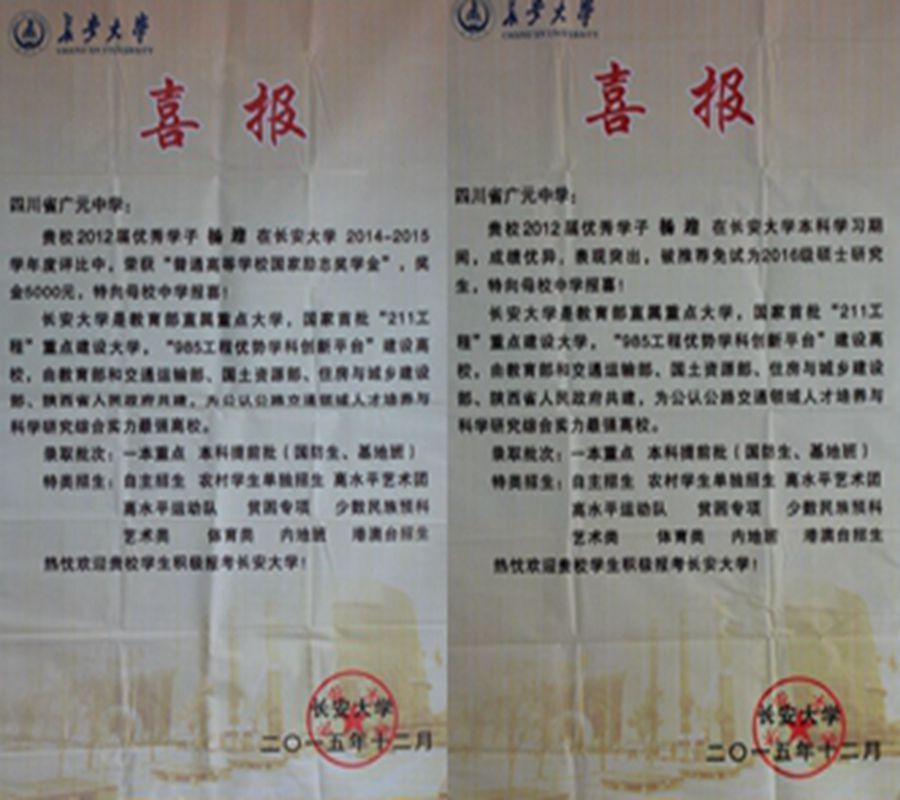 长安大学
CHANG'AN UNIVERSITY
喜报
四川省广元中学：
贵校2012届优秀学子 杨 在长安大学 2014-2015
学年度评比中，荣获“普通高等学校国家励志奖学金”，奖
金5000元，特向母校中学报喜！
长安大学是教育部直属重点大学，国家首批“211工
程”重点建设大学，“985工程优势学科创新平台”建设高
校，由教育部和交通运输部、国土资源部、住房与城乡建设
部、陕西省人民政府共建，为公认公路交通领域人才培养与
科学研究综合实力最强高校。
录取批次：一本重点 本科提前批（国防生、基地班）
特类招生：自主招生 农村学生单独招生 高水平艺术团
高水平运动队 贫困专项 少数民族预科
艺术类 体育类 内地班 港澳台招生
热忱欢迎贵校学生积极报考长安大学！
长安大学
二〇一五年十二月
长安大学
CHANG'AN UNIVERSITY
喜报
四川省广元中学：
贵校2012届优秀学子 杨 在长安大学本科学习期
间，成绩优异，表现突出，被推荐免试为2016级硕士研究
生，特向母校中学报喜！
长安大学是教育部直属重点大学，国家首批“211工
程”重点建设大学，“985工程优势学科创新平台”建设高
校，由教育部和交通运输部、国土资源部、住房与城乡建设
部、陕西省人民政府共建，为公认公路交通领域人才培养与
科学研究综合实力最强高校。
录取批次：一本重点 本科提前批（国防生、基地班）
特类招生：自主招生 农村学生单独招生 高水平艺术团
高水平运动队 贫困专项 少数民族预科
艺术类 体育类 内地班 港澳台招生
热忱欢迎贵校学生积极报考长安大学！
长安大学
二〇一五年十二月